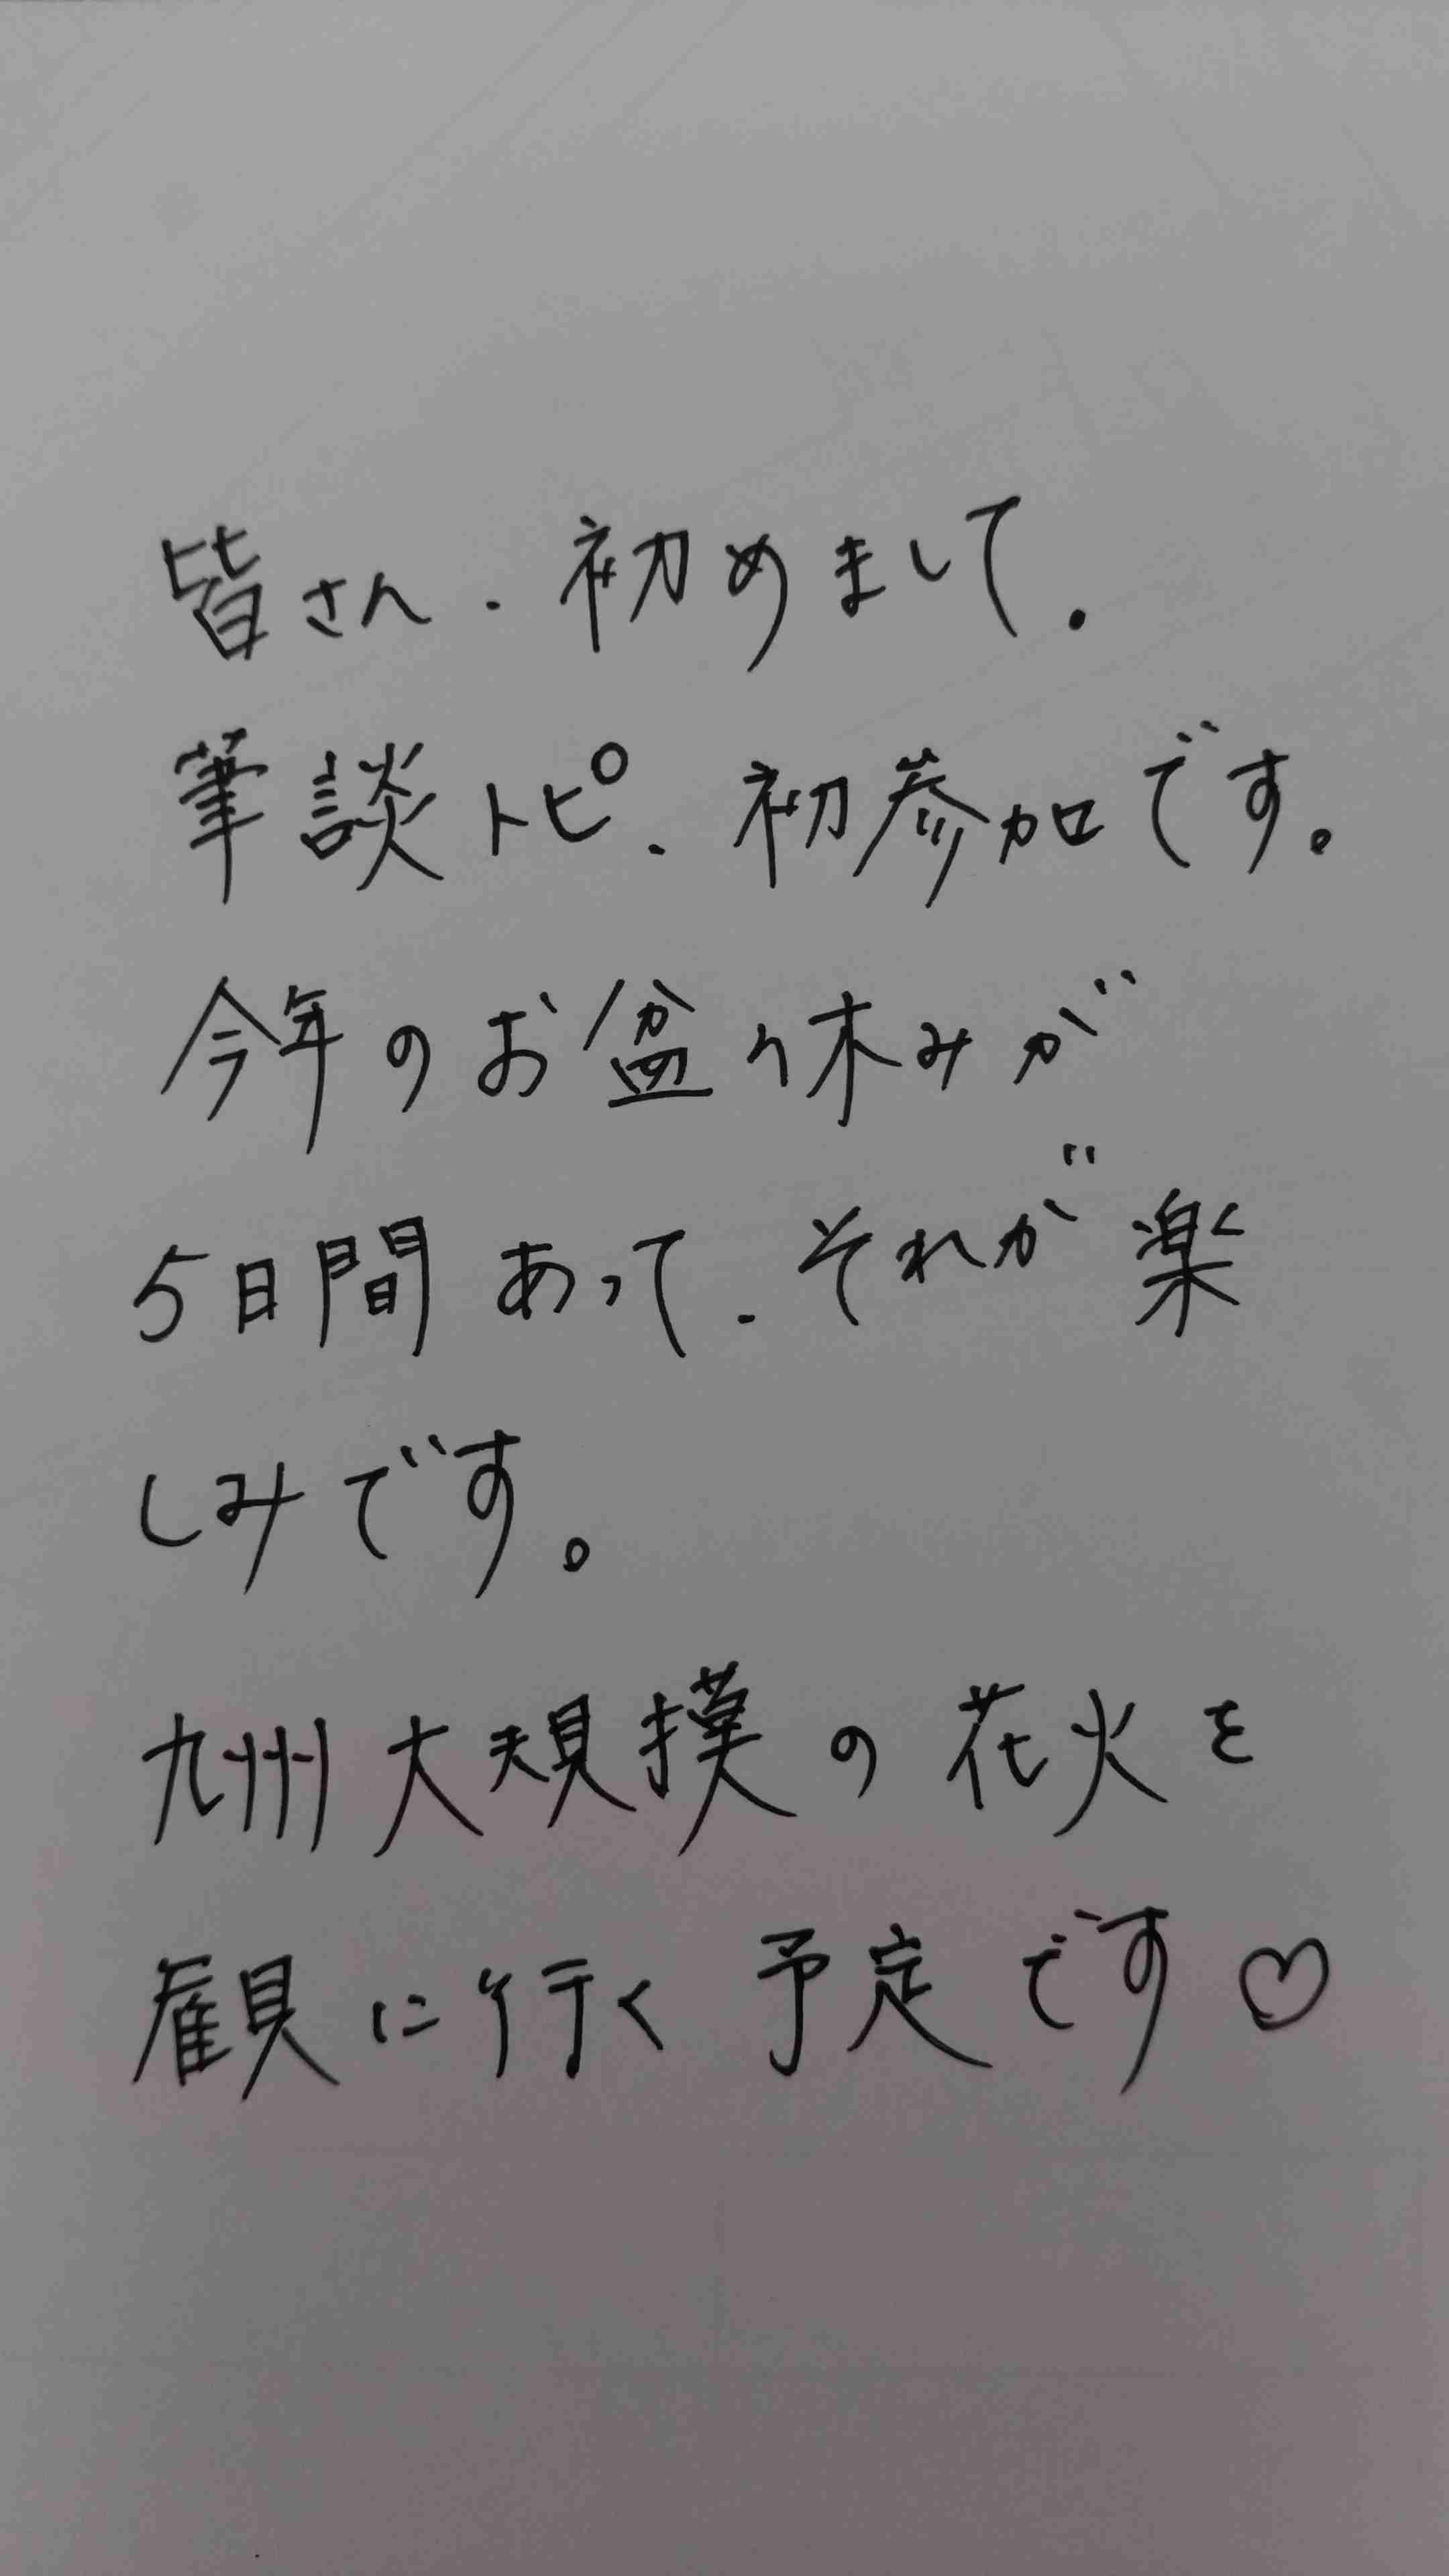 皆さん、初めまして。
筆談トピ、初参加です。
今年のお盆休みが
5日間あって、それが楽
しみです。
九州大規模の花火を
観に行く予定です♡